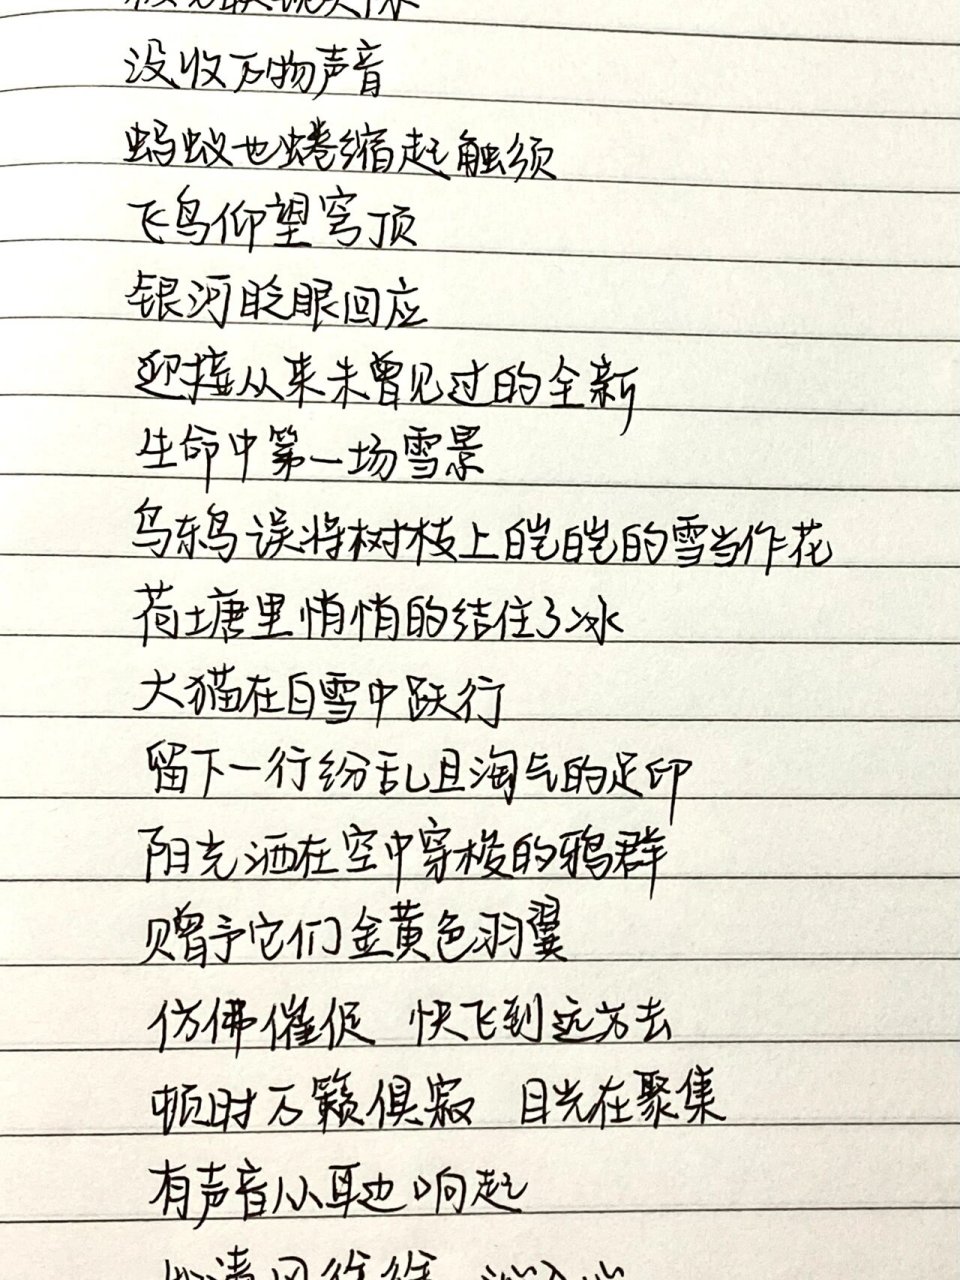 没收万物声音
蚂蚁也蜷缩起触须
飞鸟仰望穹顶
银河眨眼回应
迎接从来未曾见过的全新
生命中第一场雪景
乌鸫误将树枝上皑皑的雪当作花
荷塘里悄悄的结住了冰
大猫在白雪中跃行
留下一行纷乱且淘气的足印
阳光洒在空中穿梭的鸦群
赠予它们金黄色羽翼
仿佛催促 快飞到远方去
顿时万籁俱寂 目光在聚集
有声音从耳边响起